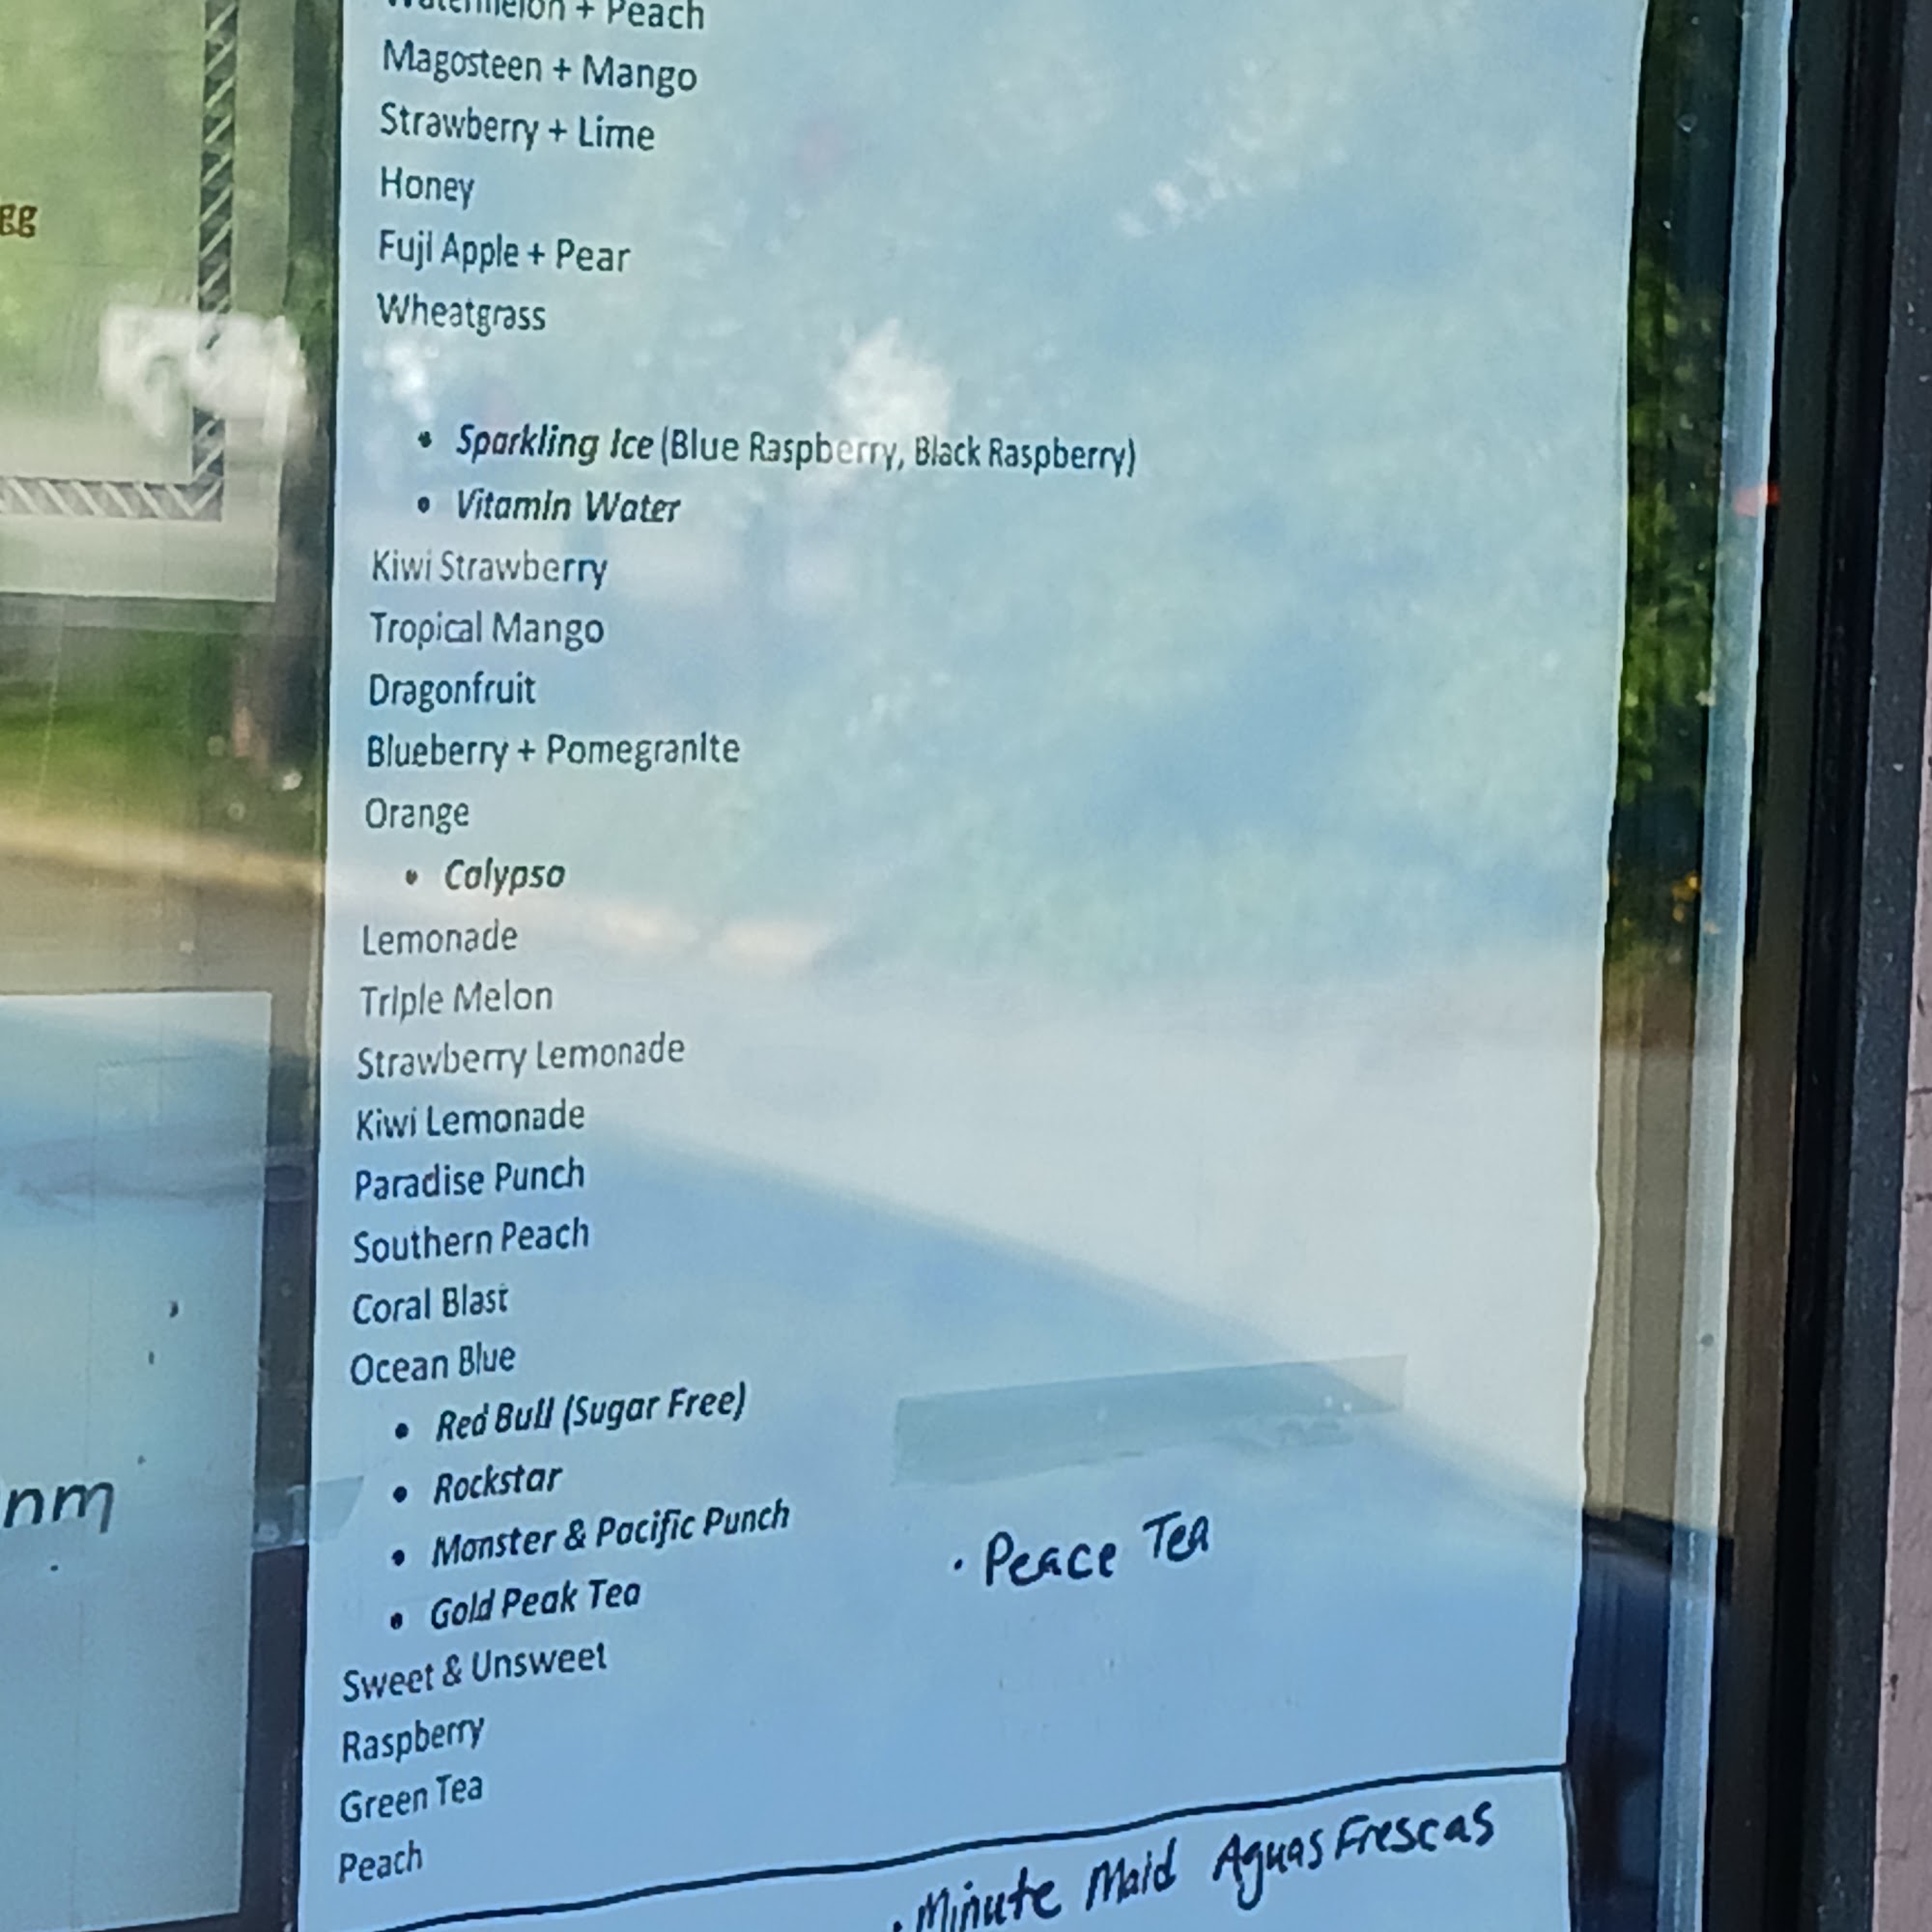 + Peach
Magosteen + Mango
Strawberry + Lime
Honey
Fuji Apple + Pear
Wheatgrass
• Sparkling Ice (Blue Raspberry, Black Raspberry)
• Vitamin Water
Kiwi Strawberry
Tropical Mango
Dragonfruit
Blueberry + Pomegranite
Orange
• Calypso
Lemonade
Triple Melon
Strawberry Lemonade
Kiwi Lemonade
Paradise Punch
Southern Peach
Coral Blast
Ocean Blue
• Red Bull (Sugar Free)
• Rockstar
• Monster & Pacific Punch
• Gold Peak Tea
Sweet & Unsweet
Raspberry
Green Tea
Peach
• Peace Tea
• Minute Maid Aguas Frescas